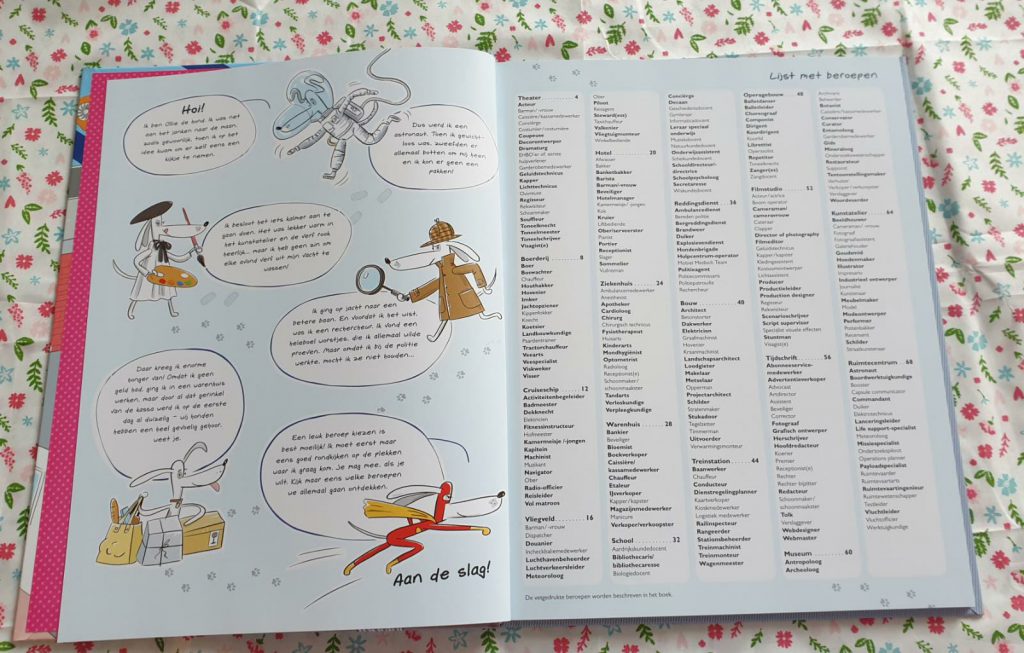 Hoi!
Ik ben Ollie de hond. Ik was net
aan het janken naar de maan,
zoals gewoonlijk, toen ik op het
idee kwam om er zelf eens een
kijkje te nemen.
Dus werd ik een
astronaut. Toen ik gewicht-
loos was, zweefden er
allemaal botten om mij heen
en ik kon er geen een
pakken!
Ik besloot het iets kalmer aan te
gaan doen. Het was lekker warm in
het kunstatelier en de verf rook
heerlijk... maar ik heb geen zin om
elke avond verf uit mijn vacht te
wassen!
Ik ging op jacht naar een
betere baan. En voordat ik het wist,
was ik een rechercheur. Ik vond een
heleboel worstjes, die ik allemaal wilde
proeven. Maar omdat ik bij de politie
werkte, mocht ik ze niet houden...
Daar kreeg ik enorme
honger van! Omdat ik geen
geld had, ging ik in een warenhuis
werken, maar door al dat gerinkel
van de kassa werd ik op de eerste
dag al duizelig – wij honden
hebben een heel gevoelig gehoor,
weet je.
Een leuk beroep kiezen is
best moeilijk! Ik moet eerst maar
eens goed rondkijken op de plekken
waar ik graag kom. Je mag mee, als je
wilt. Kijk maar eens welke beroepen
we allemaal gaan ontdekken.
Aan de slag!
Lijst met beroepen
Theater 4
Acteur
Barman/-vrouw
Caissière/kassamedewerker
Conciërge
Costumier/costumière
Coupeuse
Decorontwerper
Dramaturg
EHBO-er of eerste
hulpverlener
Garderobemedewerker
Geluidstechnicus
Kapper
Lichttechnicus
Ouvreuse
Regisseur
Rekwisiteur
Schoenmaker
Souffleur
Toneelknecht
Toneelmeester
Toneelschrijver
Visagist(e)
Boerderij 8
Boer
Boswachter
Chauffeur
Houthakker
Hovenier
Imker
Jachtopziener
Kippenfokker
Knecht
Koetsier
Landbouwkundige
Paardentrainer
Tractorchauffeur
Veearts
Veespecialist
Viskweker
Visser
Cruiseschip 12
Activiteitenbegeleider
Badmeester
Dekknecht
Elektricien
Fitnessinstructeur
Hofmeester
Kamermeisje /-jongen
Kapitein
Machinist
Muzikant
Navigator
Ober
Radio-officier
Reisleider
Vol matroos
Vliegveld 16
Barman/-vrouw
Dispatcher
Douanier
Incheckbaliemedewerker
Luchthavenbeheerder
Luchtverkeersleider
Meteoroloog
Ober
Piloot
Reisagent
Steward(ess)
Taxichauffeur
Valkenier
Vliegtuigmonteur
Winkelbediende
Hotel 20
Afwasser
Bakker
Banketbakker
Barista
Barman/-vrouw
Beveiliger
Hotelmanager
Kamermeisje/-jongen
Kok
Kruier
Liftbediende
Oberkelner
Pianist
Portier
Receptionist
Slager
Sommelier
Vuilnisman
Ziekenhuis 24
Ambulancemedewerker
Anesthesist
Apotheker
Cardioloog
Chirurg
Chirurgisch technicus
Fysiotherapeut
Huisarts
Kinderarts
Mondhygiënist
Optometrist
Radioloog
Receptionist(e)
Schoonmaker/
schoonmaakster
Tandarts
Verloskundige
Verpleegkundige
Warenhuis 28
Bankier
Beveiliger
Bloemist
Boekverkoper
Caissière/
kassamedewerker
Chauffeur
Etaleur
IJverkoper
Kapper/kapster
Magazijnmedewerker
Manicure
Verkoper/verkoopster
School 32
Aardrijkskundedocent
Bibliothecaris/
bibliothecaresse
Biologiedocent
Conciërge
Decaan
Geschiedenisdocent
Gymleraar
Informaticadocent
Leraar speciaal
onderwijs
Muziekdocent
Natuurkundedocent
Onderwijsassistent
Scheikundedocent
Schooldirecteur/-
directrice
Schoolpsycholoog
Secretaresse
Wiskundedocent
Reddingsdienst 36
Ambulancedienst
Bereden politie
Bergreddingsdienst
Brandweer
Duiker
Explosievendienst
Hondenbrigade
Hulpcentrum-operator
Mobiel Medisch Team
Politieagent
Politiecommissaris
Politiepatrouille
Rechercheur
Bouw 40
Architect
Betonstorter
Dakwerker
Elektricien
Graafmachinist
Hovenier
Kraanmachinist
Landschapsarchitect
Loodgieter
Makelaar
Metselaar
Opperman
Projectarchitect
Schilder
Stratenmaker
Stukadoor
Tegelzetter
Timmerman
Uitvoerder
Verwarmingsmonteur
Treinstation 44
Baanwerker
Machinist
Chauffeur
Conducteur
Dienstregelingplanner
Kaartverkoper
Kioskmedewerker
Logistiek medewerker
Railinspecteur
Rangeerder
Stationsbeheerder
Treinmachinist
Treinmonteur
Wagenmeester
Operagebouw 48
Balletdanser
Balletleider
Choreograaf
Componist
Dirigent
Koordirigent
Koorlid
Librettist
Operasolist
Repetitor
Toneelknecht
Zanger(es)
Zangdocent
Filmstudio 52
Acteur/actrice
Boom operator
Cameraman/
cameravrouw
Cateraar
Clapper
Director of photography
Filmeditor
Geluidstechnicus
Kapper/kapster
Kledingassistent
Kostuumontwerper
Lichtassistent
Producer
Productieleider
Production designer
Regisseur
Rekwisiteur
Scenarioschrijver
Script supervisor
Specialist visuele effecten
Stuntman
Visagist(e)
Tijdschrift 56
Abonneeservice-
medewerker
Advertentieverkoper
Advocaat
Artdirector
Assistent
Beveiliger
Corrector
Fotograaf
Grafisch ontwerper
Herschrijver
Hoofdredacteur
Koerier
Printer
Receptionist(e)
Rechter
Rechter bijzitter
Redacteur
Schoonmaker/
schoonmaakster
Tolk
Verslaggever
Webdesigner
Webmaster
Museum 60
Antropoloog
Archeoloog
Archivaris
Behwerker
Botanist
Caissière/kassamedewerker
Conservator
Curator
Entomoloog
Garderobemedewerker
Gids
Mineraloog
Onderzoekswetenschapper
Restaurateur
Suppoost
Tentoonstellingsmaker
Verhuizer
Verkoper/verkoopster
Verslaggever
Woordvoerder
Kunstatelier 64
Beeldhouwer
Cameraman/-vrouw
Fotograaf
Fotografieassistent
Galeriehouder
Goudsmid
Hoedenmaker
Illustrator
Impresario
Industrieel ontwerper
Journalist
Kunstenaar
Meubelmaker
Model
Modeontwerper
Performer
Pottenbakker
Recensent
Schilder
Straatkunstenaar
Ruimtecentrum 68
Astronaut
Boordwerktuigkundige
Booster
Capsule communicator
Commandant
Duiker
Elektrotechnicus
Lanceringleider
Life support-specialist
Meteoroloog
Missiespecialist
Onderzoekspiloot
Operations planner
Payloadspecialist
Ruimtevaarder
Ruimtevaartarts
Ruimtevaartingenieur
Ruimtewetenschapper
Testpiloot
Vluchtleider
Vluchtofficier
Werktuigkundige
De vetgedrukte beroepen worden beschreven in het boek.